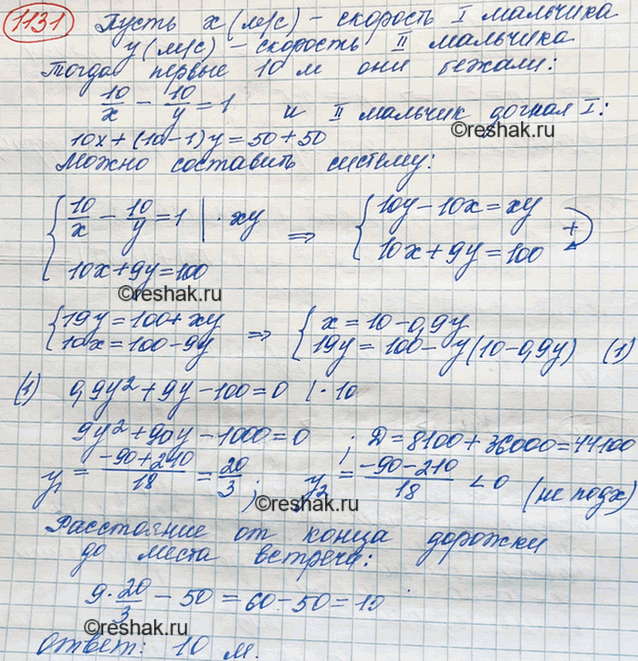 1131 Пусть x (м/с) – скорость I мальчика
y (м/с) – скорость II мальчика
Тогда первые 10 м они бежали:
10/x - 10/y = 1 и II мальчик догнал I:
©reshak.ru
10x + (10-1)y = 50 + 50
Можно составить систему:
{ 10/x - 10/y = 1 | · xy ⇒ { 10y - 10x = xy
10x + 9y = 100 10x + 9y = 100 +
©reshak.ru
{ 19y = 100 + xy ⇒ { x = 10 - 0,9y
10x = 100 - 9y 19y = 100 - y(10 - 0,9y) (1)
(1) 0,9y² + 9y - 100 = 0 | · 10
9y² + 90y - 1000 = 0 ; D = 8100 + 36000 = 44100
y₁ = (-90 + 210)/18 = 20/3 ; y₂ = (-90 - 210)/18 < 0 (не подх)
Расстояние от конца дорожки
до места встречи:
9 · 20/3 - 50 = 60 - 50 = 10
©reshak.ru
Ответ: 10 м.